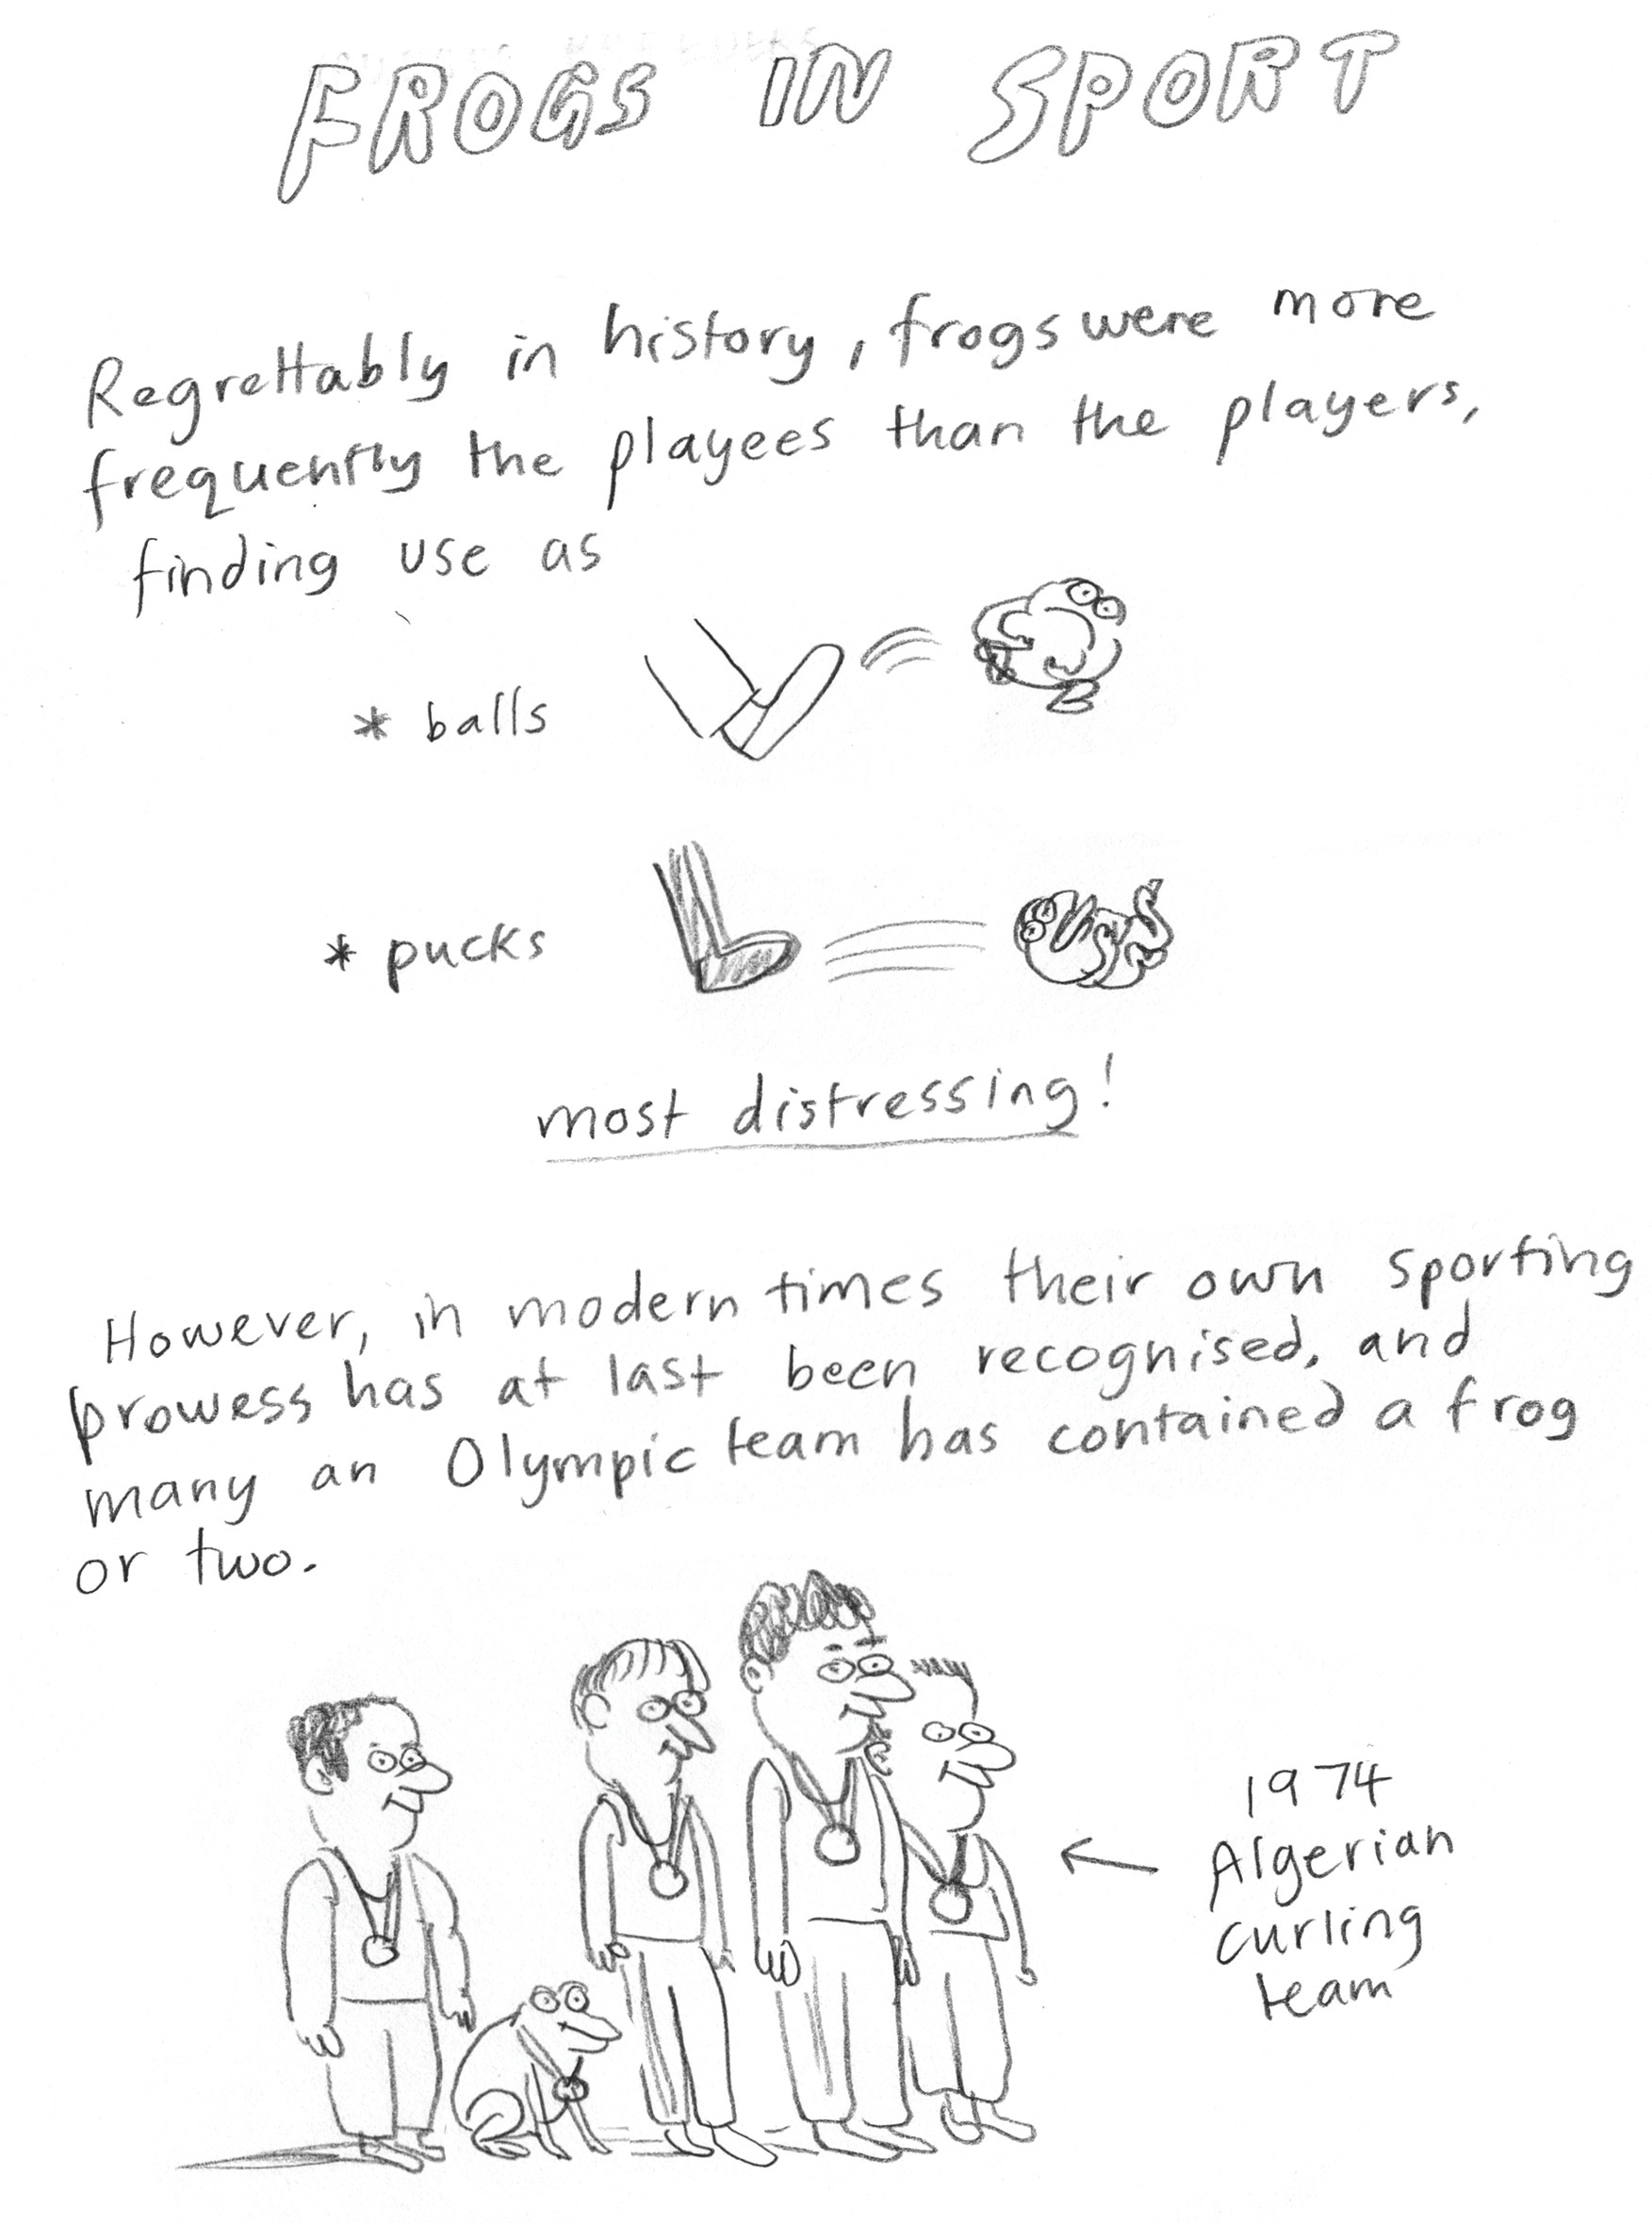 FROGS IN SPORT
Regrettably in history, frogs were more
frequently the playees than the players,
finding use as
* balls
* pucks
most distressing!
However, in modern times their own sporting
prowess has at last been recognised, and
many an Olympic team has contained a frog
or two.
1974
Algerian
curling
team